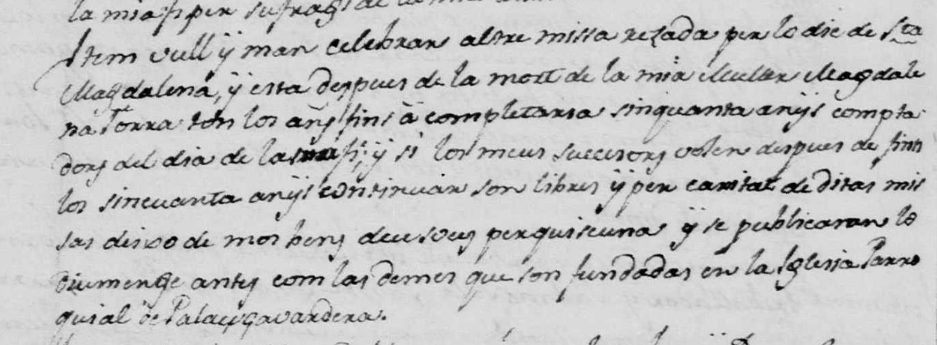 la mia fi per sufragi de la
Item vull ÿ man celebrar altre missa rezada per lo die de Sta
Magdalena, ÿ esta despues de la mort de la mia Muller Magdale
na Torra tots los añs fins à completaria sinquanta anÿs compta
dors del dia de la mia fi; ÿ si los meus succesors volen despues de finits
los sincuanta anÿs continuar son libres ÿ per caritat de ditas mis
sas deixo de mos bens deu sous per quiscuna ÿ se publicaran lo
Diumenge antes com las demes que son fundadas en la Iglesia Parro
quial de Palau çavardera.